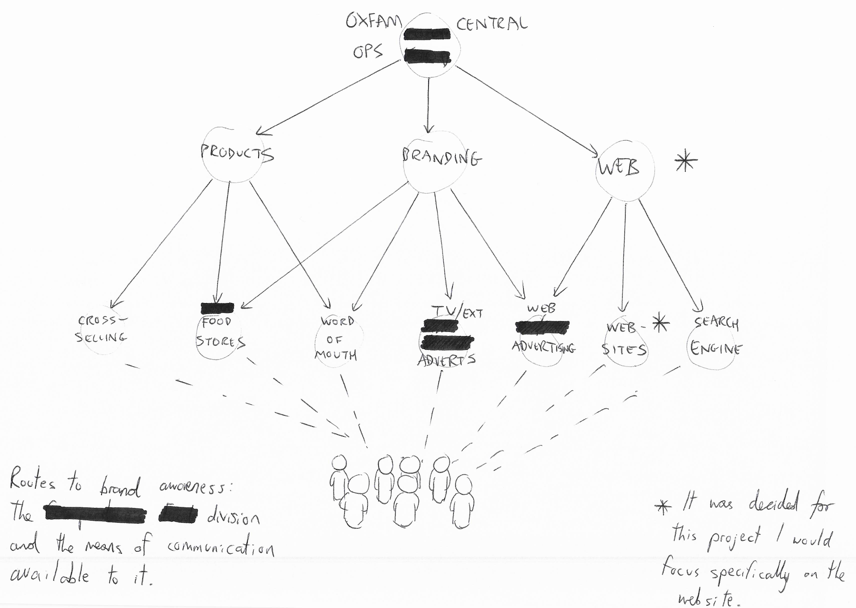 OXFAM CENTRAL
OPS
PRODUCTS
BRANDING
WEB *
CROSS-
SELLING
FOOD
STORES
WORD
OF
MOUTH
TV/EXT
ADVERTS
WEB
ADVERTISNG
WEB- *
SITES
SEARCH
ENGINE
Routes to brand awareness:
The division
and the means of communication
available to it.
* It was decided for
this project I would
focus specifically on the
website.